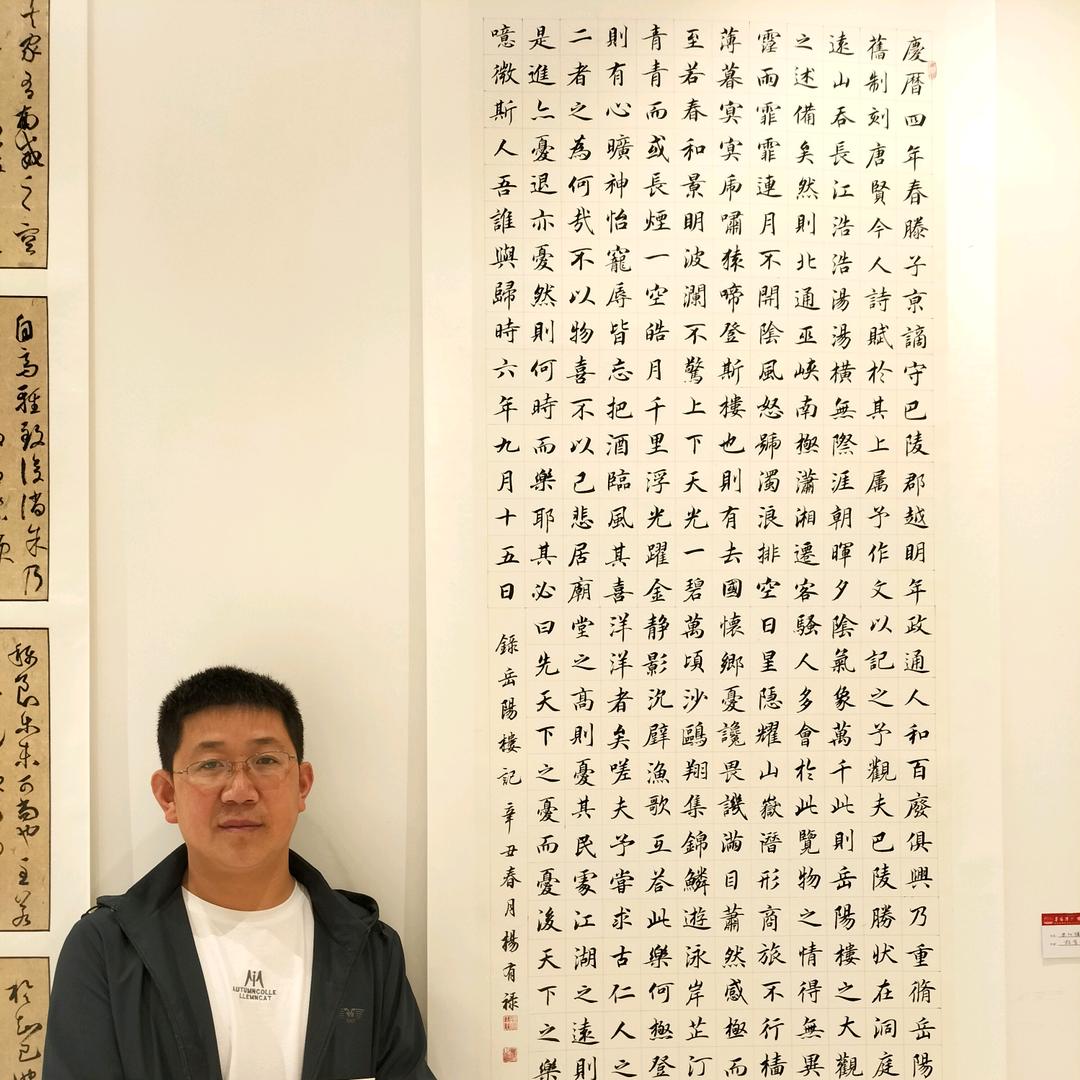 慶曆四年春滕子京謫守巴陵郡越明年政通人和百廢俱興乃重脩岳陽
舊制刻唐賢今人詩賦於其上属予作文以記之予觀夫巴陵勝狀在洞庭
遠山吞長江浩浩湯湯橫無際涯朝暉夕陰氣象萬千此則岳陽樓之大觀
之述備矣然則北通巫峽南極瀟湘遷客騷人多會於此覽物之情得無異
霪雨霏霏連月不開陰風怒號濁浪排空日星隱耀山嶽潛形商旅不行檣
薄暮冥冥虎嘯猿啼登斯樓也則有去國懷鄉憂讒畏譏滿目蕭然感極而
至若春和景明波瀾不驚上下天光一碧萬頃沙鷗翔集錦鱗遊泳岸芷汀
青青而或長煙一空皓月千里浮光躍金静影沉璧漁歌互荅此樂何極登
則有心曠神怡寵辱皆忘把酒臨風其喜洋洋者矣嗟夫予嘗求古仁人之
二者之為何哉不以物喜不以己悲居廟堂之高則憂其民處江湖之遠則
是進亦憂退亦憂然則何時而樂耶其必曰先天下之憂而憂後天下之樂
噫微斯人吾誰與歸時六年九月十五日 錄岳陽樓記 辛丑春月楊有祿
AUTUMNCOLLE
LLEMNCAT